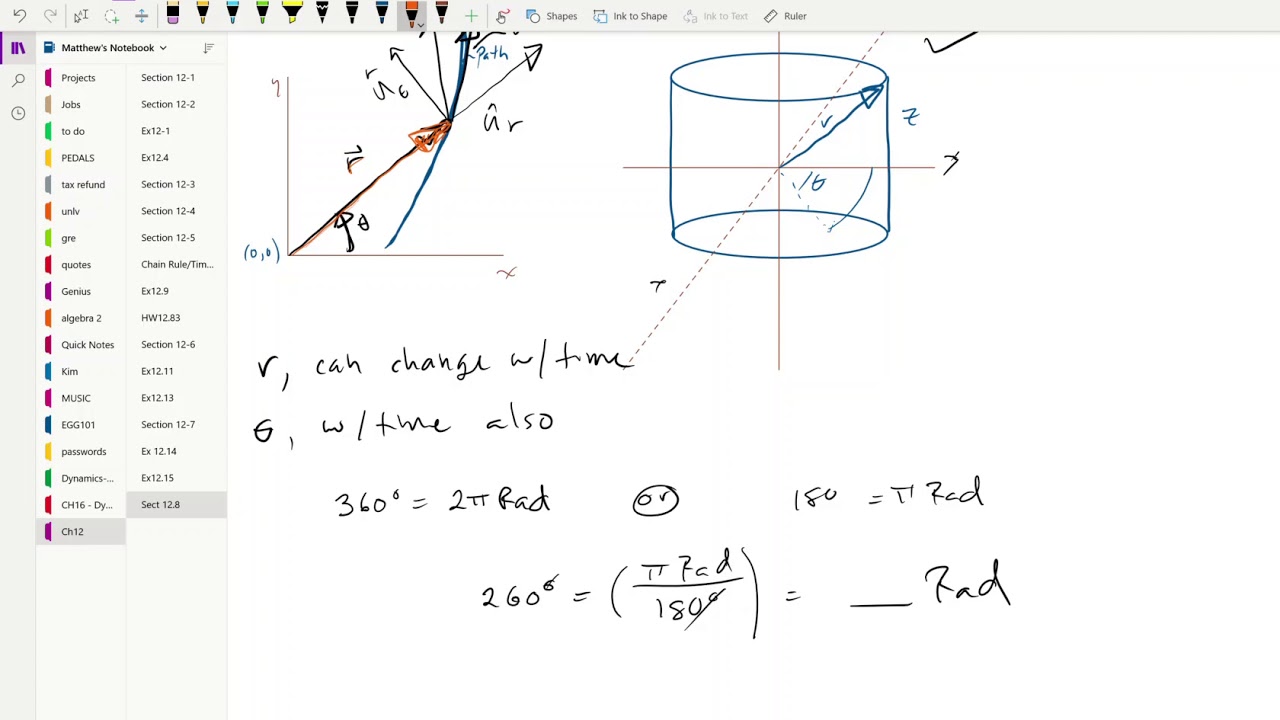 Shapes
Ink to Shape
Ink to Text
Ruler
Matthew's Notebook
Projects
Jobs
to do
PEDALS
tax refund
unlv
gre
quotes
Genius
algebra 2
Quick Notes
Kim
MUSIC
EGG101
passwords
Dynamics-...
CH16 - Dy...
Ch12
Section 12-1
Section 12-2
Ex12-1
Ex12.4
Section 12-3
Section 12-4
Section 12-5
Chain Rule/Tim...
Ex12.9
HW12.83
Section 12-6
Ex12.11
Ex12.13
Section 12-7
Ex 12.14
Ex12.15
Sect 12.8
y
Path
û_θ
û_r
r⃗
θ
(0,0)
x
r
z
θ
r, can change w/time
θ, w/time also
360° = 2π Rad or 180 = π Rad
260° = (π Rad / 180°) = __ Rad